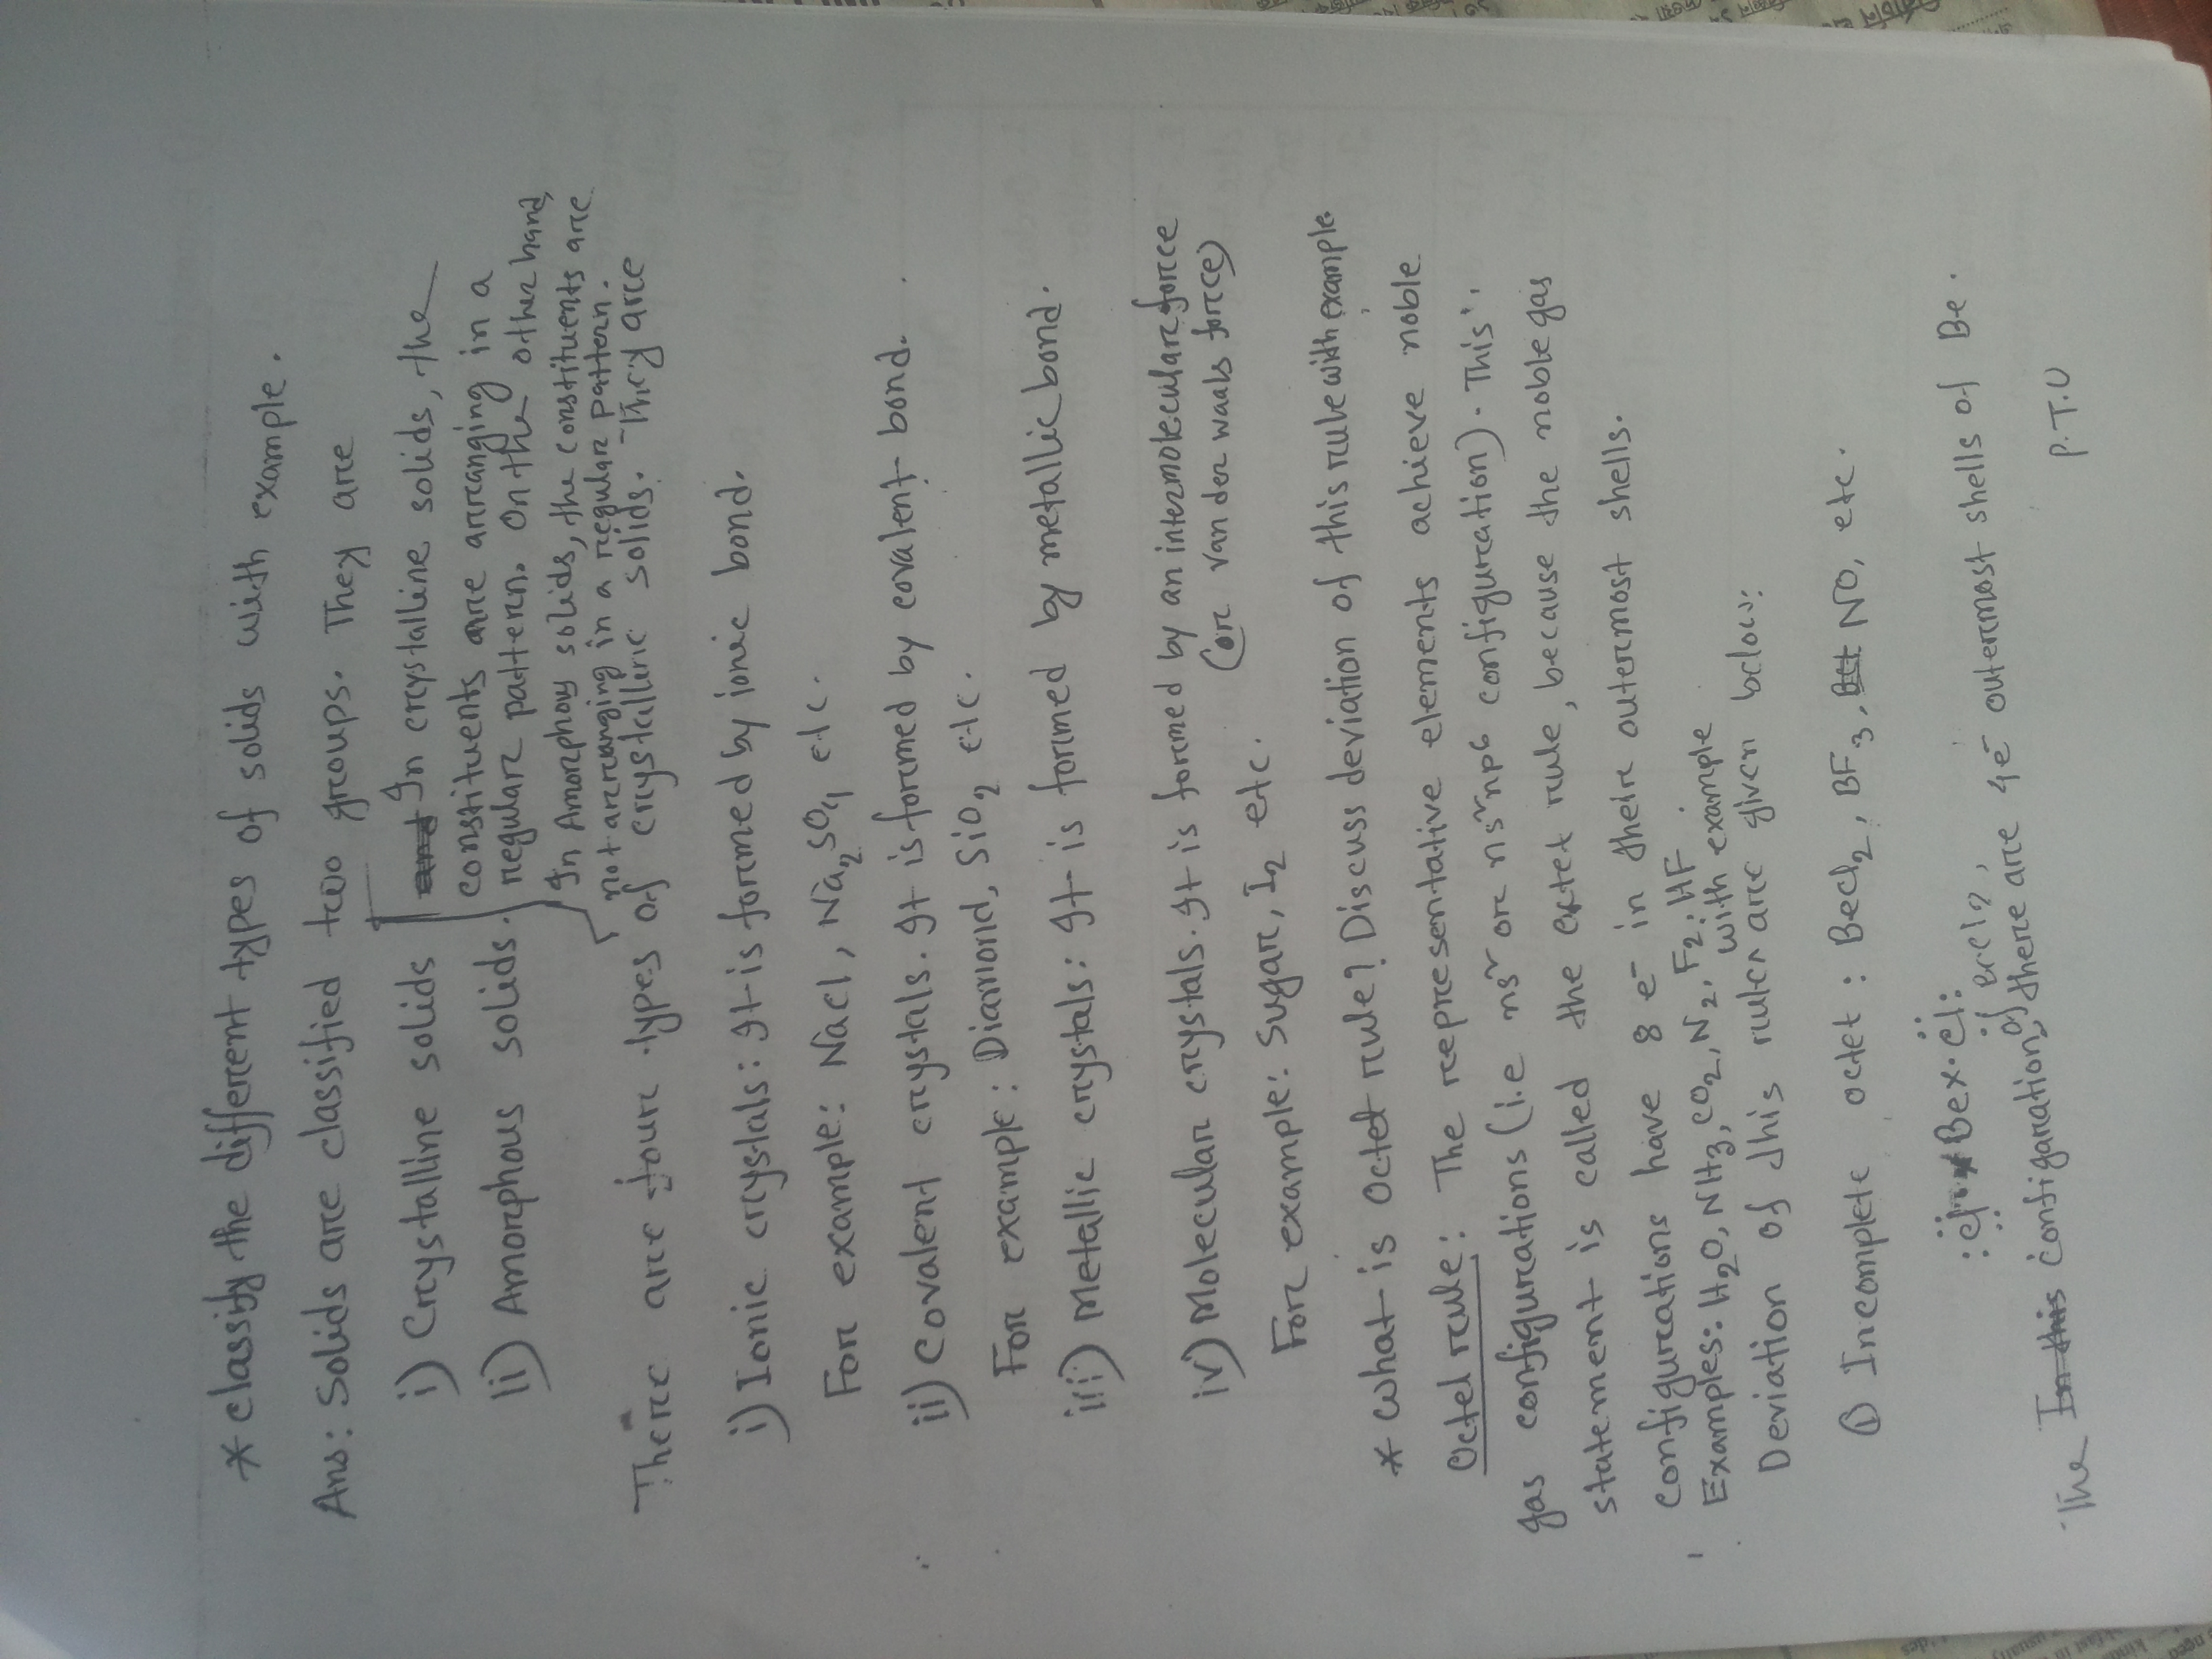 * classify the different types of solids with example.
Ans: Solids are classified two groups. They are
i) Crystalline solids
In crystalline solids, the
constituents are arranging in a
regular pattern. On the other hand,
ii) Amorphous solids.
In Amorphous solids, the constituents are
not arranging in a regular pattern.
There are four types of crystalline solids. They are
i) Ionic crystals: It is formed by ionic bond.
For example: NaCl, Na2SO4 etc.
ii) Covalent crystals. It is formed by covalent bond.
For example: Diamond, SiO2 etc.
iii) Metallic crystals: It is formed by metallic bond.
iv) Molecular crystals. It is formed by an intermolecular force
(or van der waals force)
For example: Sugar, I2 etc.
* What is Octet rule? Discuss deviation of this rule with example.
Octet rule: The representative elements achieve noble
gas configurations (i.e ns² or ns²np6 configuration). This
statement is called the octet rule, because the noble gas
configurations have 8 e- in their outermost shells.
Examples: H2O, NH3, CO2, N2, F2, HF
with example
Deviation of this rule are given below:
① Incomplete octet: BeCl2, BF3, NO, etc.
:Cl Be Cl:
The In this configuration of BeCl2, there are 4e- outermost shells of Be.
P.T.O